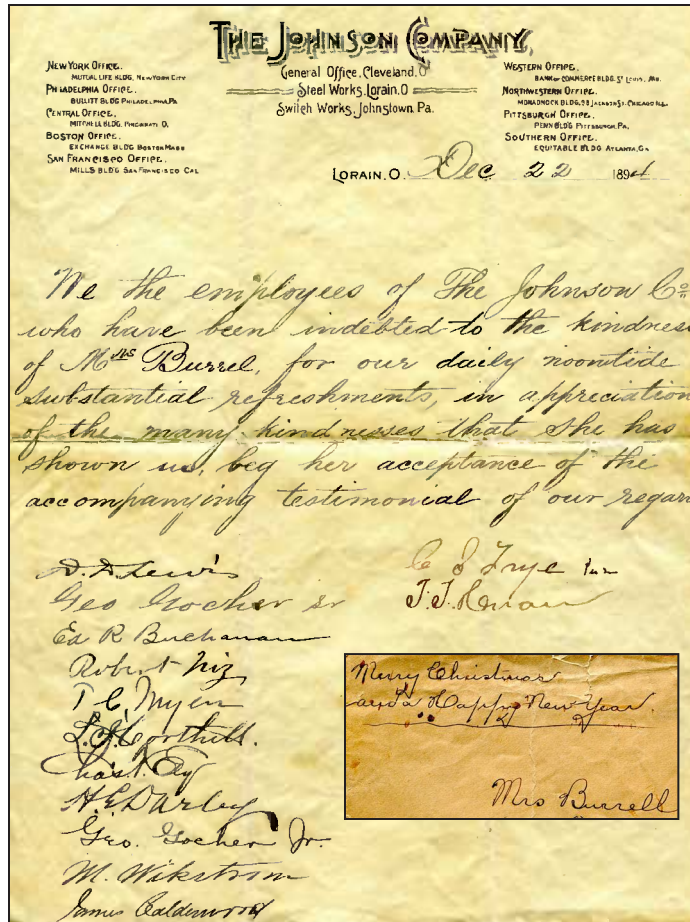 THE JOHNSON COMPANY,
General Office, Cleveland, O
Steel Works, Lorain, O
Switch Works, Johnstown, Pa.
NEW YORK OFFICE.
MUTUAL LIFE BLDG, NEW YORK CITY
PHILADELPHIA OFFICE.
BULLITT BLDG PHILADELPHIA, PA
CENTRAL OFFICE.
MITCHELL BLDG, CINCINNATI O.
BOSTON OFFICE.
EXCHANGE BLDG BOSTON MASS
SAN FRANCISCO OFFICE.
MILLS BLD'G SAN FRANCISCO CAL
WESTERN OFFICE.
BANK OF COMMERCE BLDG. ST LOUIS, MO.
NORTHWESTERN OFFICE.
MONADNOCK BLDG, 98 JACKSON ST. CHICAGO ILL.
PITTSBURGH OFFICE.
PENN BLD'G PITTSBURGH, PA.
SOUTHERN OFFICE.
EQUITABLE BLDG ATLANTA, GA
LORAIN, O. Dec 22 1894
We the employees of The Johnson Co
who have been indebted to the kindness
of Mrs Burrel, for our daily noontide
substantial refreshments, in appreciation
of the many kindnesses that she has
shown us, beg her acceptance of the
accompanying testimonial of our regard
D. D. Lewis
Geo Gocher sr
Ed R Buchanan
Robert
T C Myers
L. J. Corthell.
Chas. T.
H. E. Darley
Geo. Gocher Jr.
M. Wikstrom
James Calderwood
C J Frye
J. J.
Merry Christmas
and a Happy New Year.
Mrs Burrell